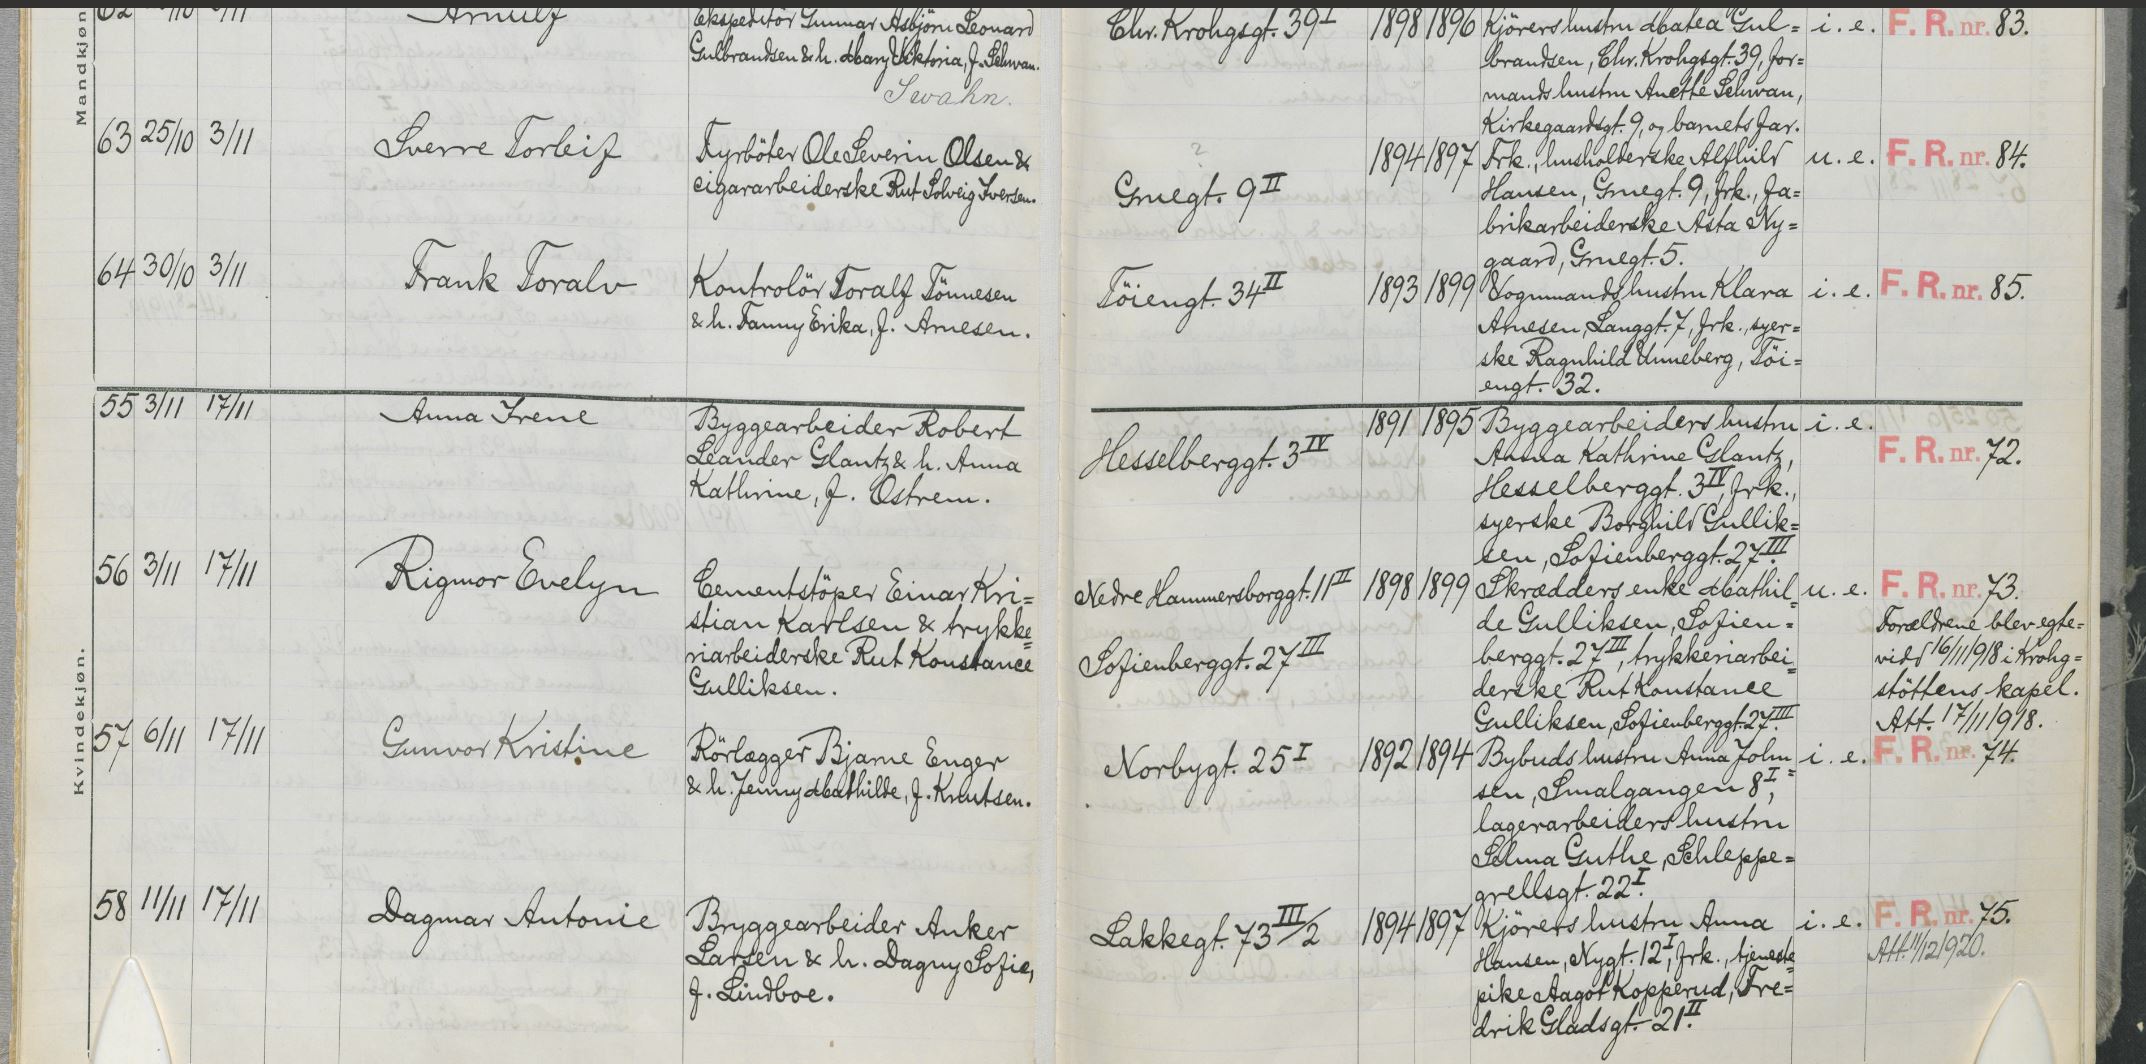 Mandkjøn
62
Arnulf
Ekspeditör Gunnar Asbjörn Leonard
Gulbrandsen & h. Mary Viktoria, f. Schwan.
Swahn.
Chr. Krohgsgt. 39 I
1898 1896
Kjörers hustru Matea Gul=
brandsen, Chr. Krohgsgt. 39, for=
mands hustru Anette Schwan,
Kirkegaardsgt. 9, og barnets far.
i. e.
F. R. nr. 83.
63 25/10 3/11
Sverre Torleif
Fyrböter Ole Severin Olsen &
cigararbeiderske Rut Solveig Iversen.
?
Gruegt. 9 II
1894 1897
Frk., husholderske Alfhild
Hansen, Gruegt. 9, frk., fa=
brikarbeiderske Asta Ny=
gaard, Gruegt. 5.
u. e.
F. R. nr. 84.
64 30/10 3/11
Frank Toralv
Kontrolör Toralf Tönnesen
& h. Fanny Erika, f. Arnesen.
Töiengt. 34 II
1893 1899
Vognmands hustru Klara
Arnesen, Langgt. 7, frk., syer=
ske Ragnhild Unneberg, Töi=
engt. 32.
i. e.
F. R. nr. 85.
Kvindekjøn.
55 3/11 17/11
Anna Irene
Byggearbeider Robert
Leander Glantz & h. Anna
Kathrine, f. Östrem.
Hesselberggt. 3 IV
1891 1895
Byggearbeiders hustru
Anna Kathrine Glantz,
Hesselberggt. 3 IV, frk.,
syerske Borghild Gullik=
sen, Sofienberggt. 27 III.
i. e.
F. R. nr. 72.
56 3/11 17/11
Rigmor Evelyn
Cementstöper Einar Kri=
stian Karlsen & trykke=
riarbeiderske Rut Konstance
Gulliksen.
Nedre Hammersborggt. 11 II
Sofienberggt. 27 III
1898 1899
Skrædders enke Mathil=
de Gulliksen, Sofien=
berggt. 27 III, trykkeriarbei=
derske Rut Konstance
Gulliksen, Sofienberggt. 27 III.
u. e.
F. R. nr. 73.
Forældrene blev egte=
vidd 16/11 1918 i Krohg=
stöttens kapel.
Att. 17/11 1918.
57 6/11 17/11
Gunvor Kristine
Rörlægger Bjarne Enger
& h. Jenny Mathilde, f. Knutsen.
Norbygt. 25 I
1892 1894
Bybuds hustru Anna John=
sen, Smalgangen 8 I,
lagerarbeiders hustru
Selma Guthe, Schleppe=
grellsgt. 22 I.
i. e.
F. R. nr. 74.
58 11/11 17/11
Dagmar Antonie
Bryggearbeider Anker
Larsen & h. Dagny Sofie,
f. Lindboe.
Lakkegt. 73 III/2
1894 1897
Kjörers hustru Anna
Hansen, Nygt. 12 I, frk., tjeneste=
pike Aagot Kopperud, Fre=
drik Gladsgt. 21 II.
i. e.
F. R. nr. 75.
Att. 11/12 1920.